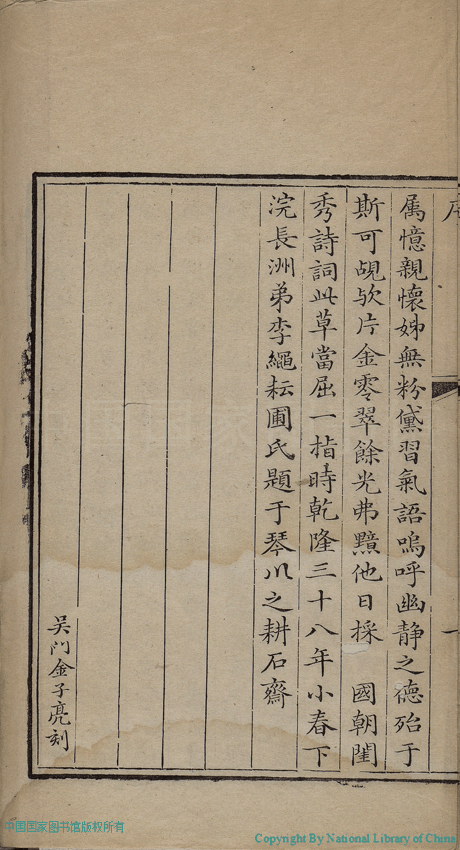 序
屬憶親懷姊無粉黛習氣語嗚呼幽静之德殆于
斯可覘欤片金零翠餘光弗黯他日採　國朝閨
秀詩詞此草當屈一指時乾隆三十八年小春下
浣長洲弟李繩耘圃氏題于琴川之耕石齋
吴门金子亮刻
一
中国国家图书馆版权所有
Copyright By National Library of China